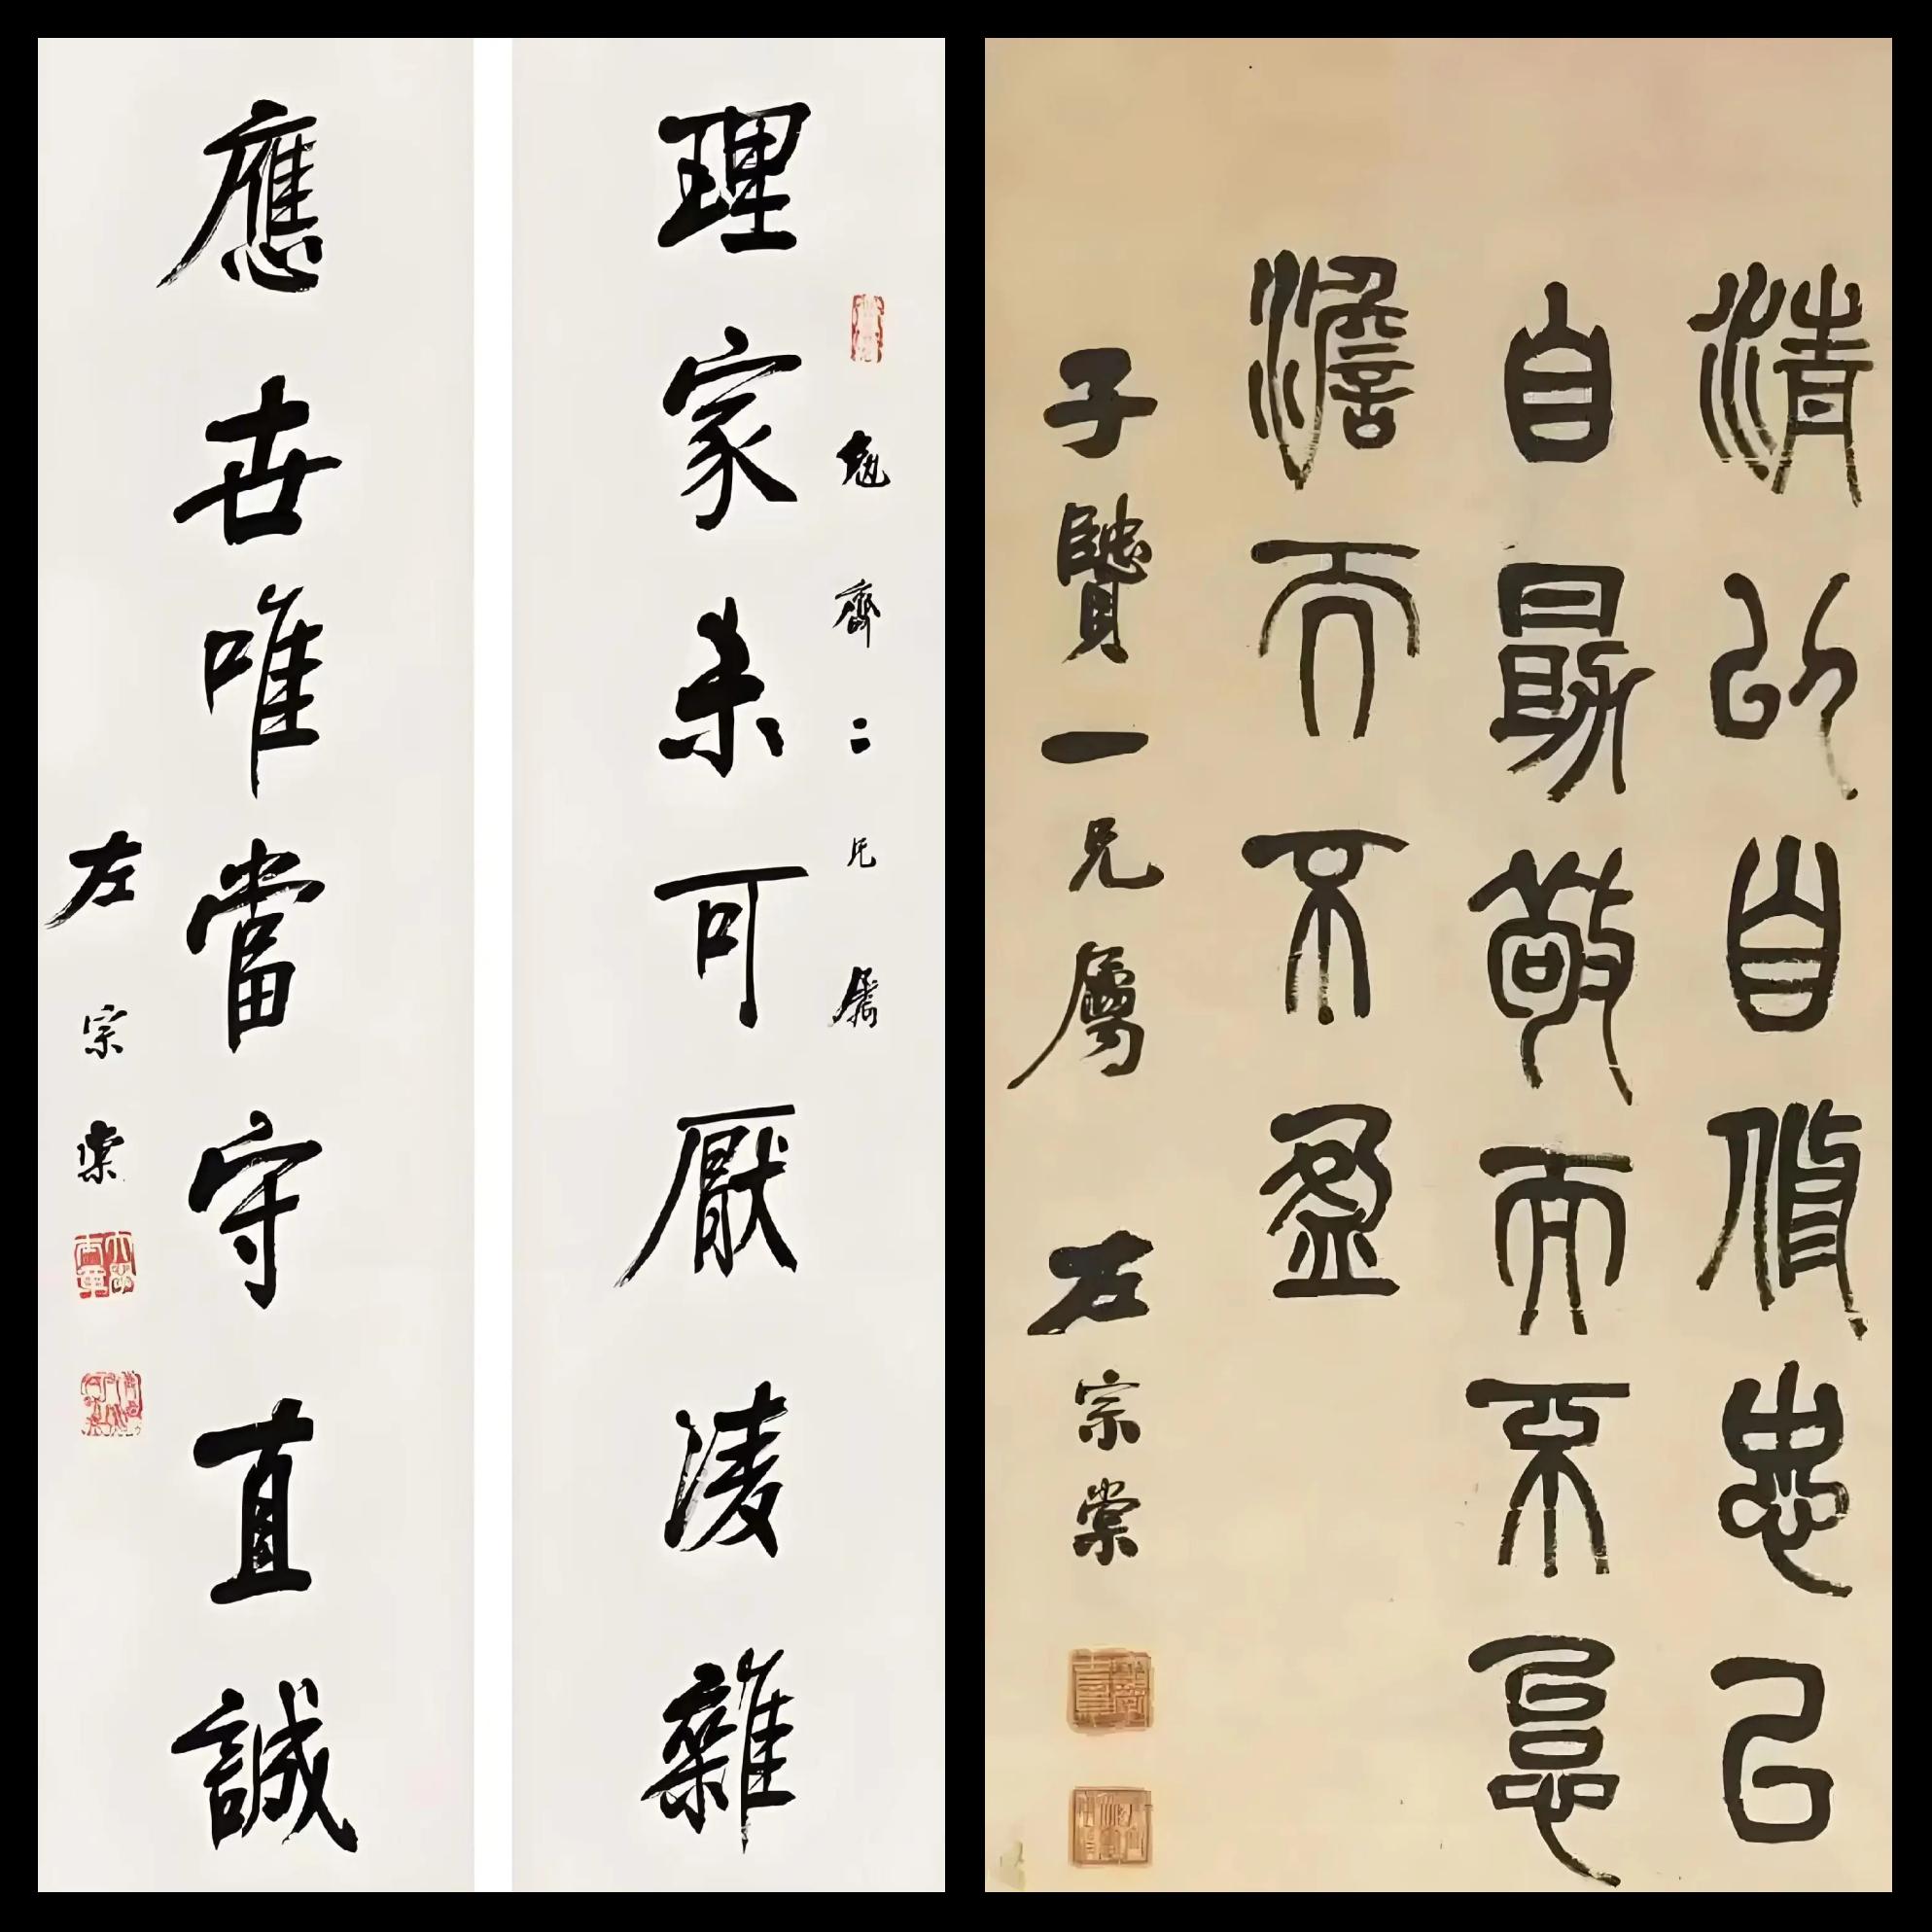 理家未可厭淩雜
勉齋二兄屬
應世唯當守直誠
左宗棠
清以自修忠以
自勗敬而不怠
澹而不盈
子贒一兄屬 左宗棠